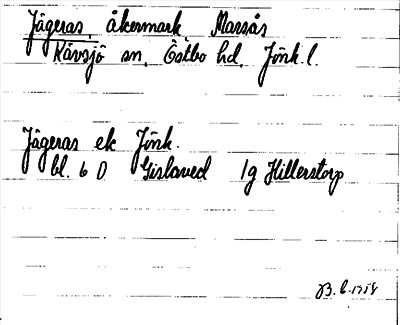 Jägeras, åkermark, Marsås
Kävsjö sn, Östbo hd, Jönk. l.
Jägeras ek Jönk.
bl. 6 D Gislaved 1g Hillerstorp
1958